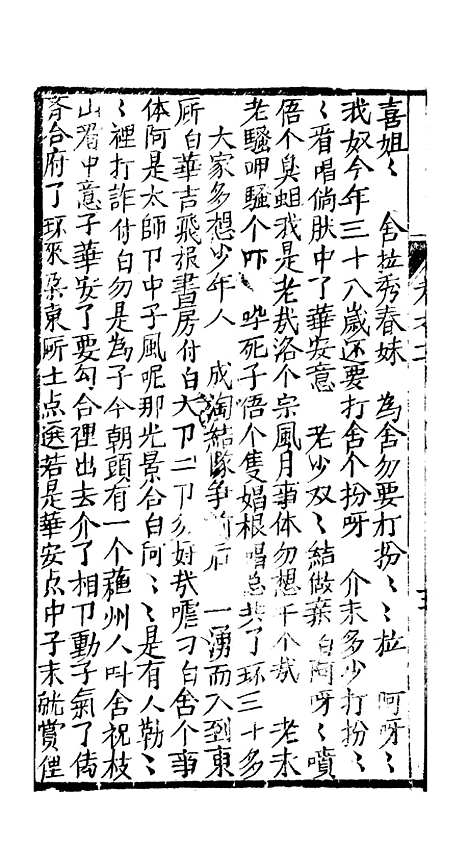 喜姐〻　舍拉秀春妹　為舍勿要打扮〻〻拉　阿呀〻
我奴今年三十八歲还要打舍个扮呀　介末多少打扮〻
〻看唱倘肤中了華安意　老少双〻結做親白阿呀〻噴
倍个臭蛆我是老𢦏洛个宗風月事体勿想干个𢦏　老末
老騷呷騷个吓　哗死子悟个隻娼根唱总共了环三十多
大家多想少年人　成淘結隊争前后　一湧而入到東
𠩄白華吉飛报書房付白大卩二卩勿好𢦏嘘刁白舍个事
体阿是太師卩中子風呢那光景合白阿〻〻是有人勒〻
〻裡打詐付白勿是為子今朝頭有一个蘓州人叫舍祝枝
山看中意子華安了要勾合裡出去介了相卩動子氣了傳
齊合府了环來朶東𠩄士点選若是華安点中子末就賞俚